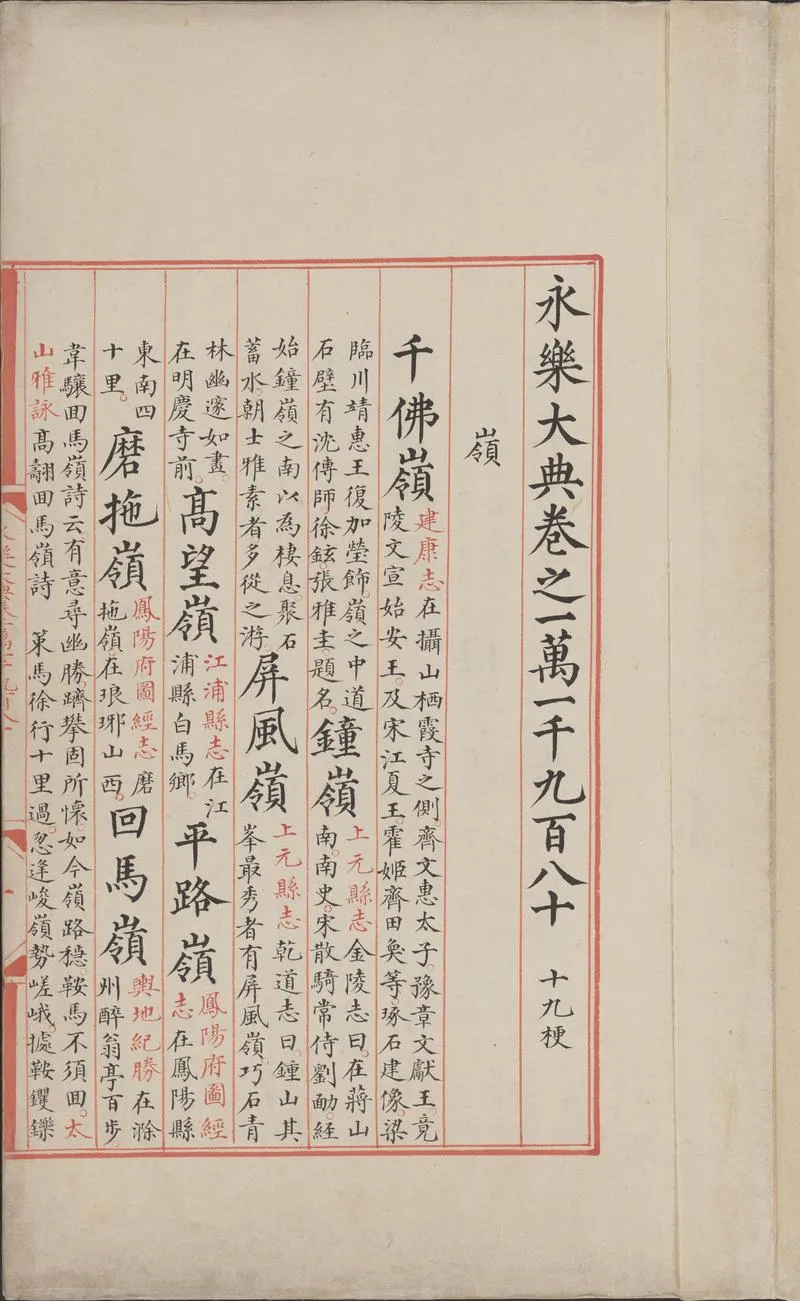 永樂大典卷之一萬一千九百八十 十九梗
嶺
千佛嶺
建康志在攝山栖霞寺之側齊文惠太子豫章文獻王竟
陵文宣始安王及宋江夏王霍姬齊田奐等琢石建像梁
臨川靖惠王復加瑩飾嶺之中道
石壁有沈傳師徐鉉張雅圭題名
鐘嶺
上元縣志金陵志曰在蔣山
南南史宋散騎常侍劉勔經
始鐘嶺之南以為棲息聚石
蓄水朝士雅素者多從之游
屏風嶺
上元縣志乾道志曰鍾山其
峯最秀者有屏風嶺巧石青
林幽邃如畫
在明慶寺前
髙望嶺
江浦縣志在江
浦縣白馬鄉
平路嶺
鳳陽府圖經
志在鳳陽縣
東南四
十里
磨拖嶺
鳳陽府圖經志磨
拖嶺在琅琊山西
回馬嶺
輿地紀勝在滁
州醉翁亭百步
韋驤回馬嶺詩云有意尋幽勝躋攀固所懷如今嶺路穩鞍馬不須回太
山雅詠髙翿回馬嶺詩 策馬徐行十里過忽逢峻嶺勢嵯峨據鞍钁鑠